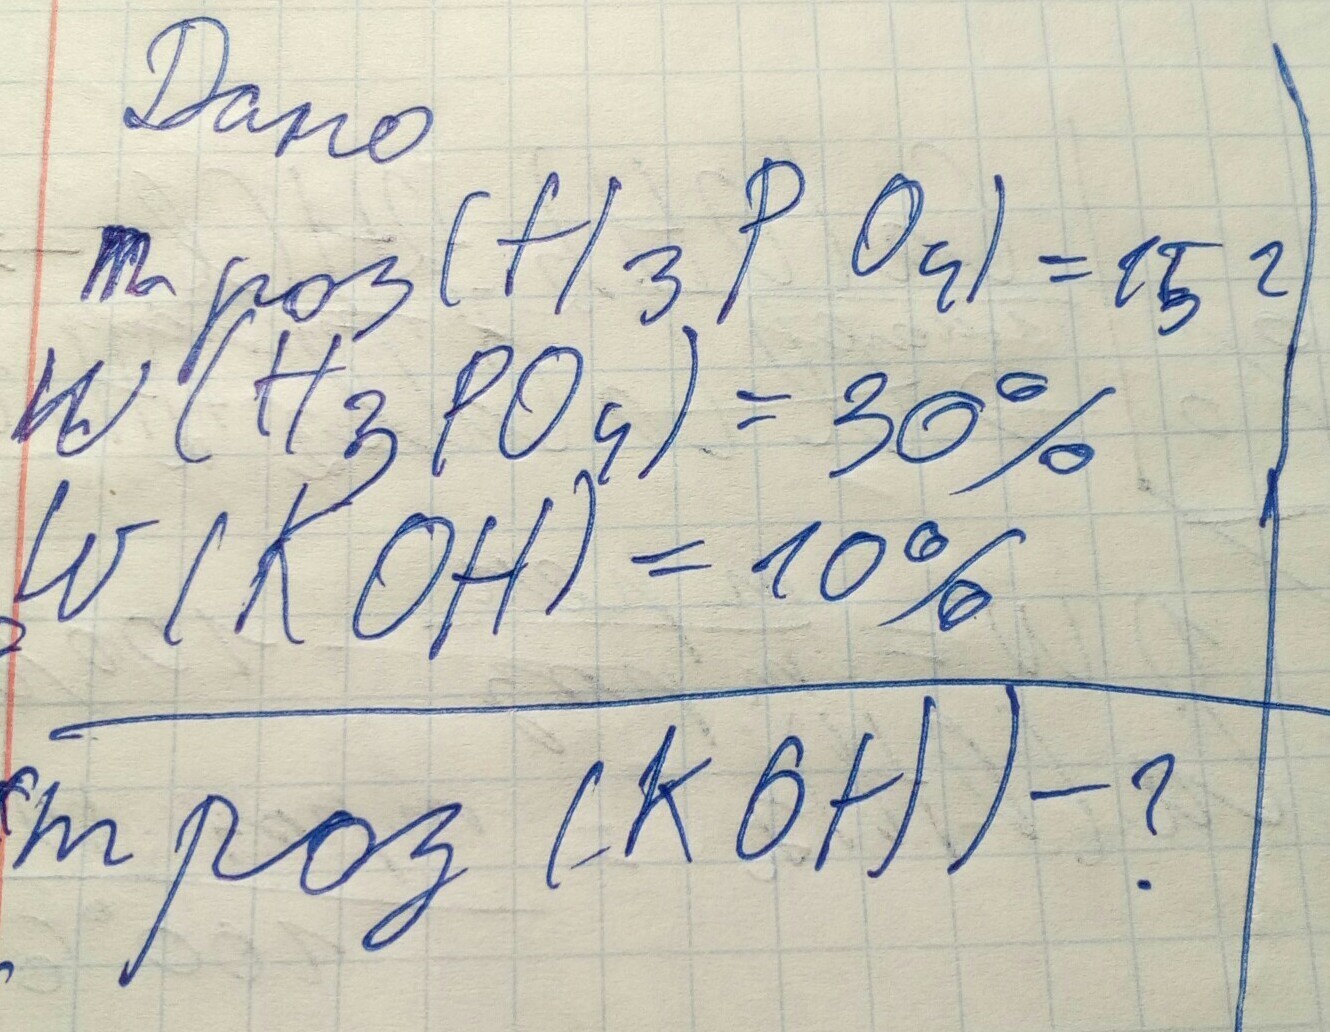 Дано
m роз (H3PO4) = 15 г
W (H3PO4) = 30%
W (KOH) = 10%
m роз (KOH) - ?